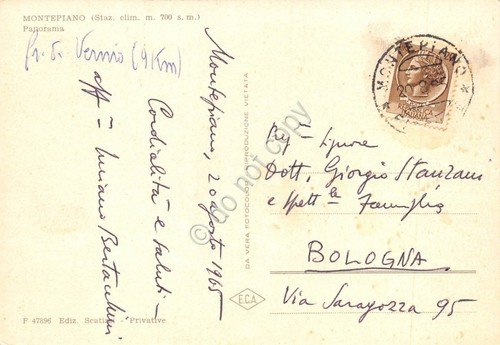 MONTEPIANO (Staz. clim. m. 700 s. m.)
Panorama
Pr. di Vernio (9 Km)
Montepiano, 20 agosto 1965
Cordialità e saluti -
aff - Luciano Bertacchini
Preg - Signore
Dott. Giorgio Stanzani
e spett le Famiglia
BOLOGNA
Via Saragozza 95
MONTEPIANO
DA VERA FOTOCOLOR - RIPRODUZIONE VIETATA
E.C.A.
F 47896 Ediz. - Privative
do not copy